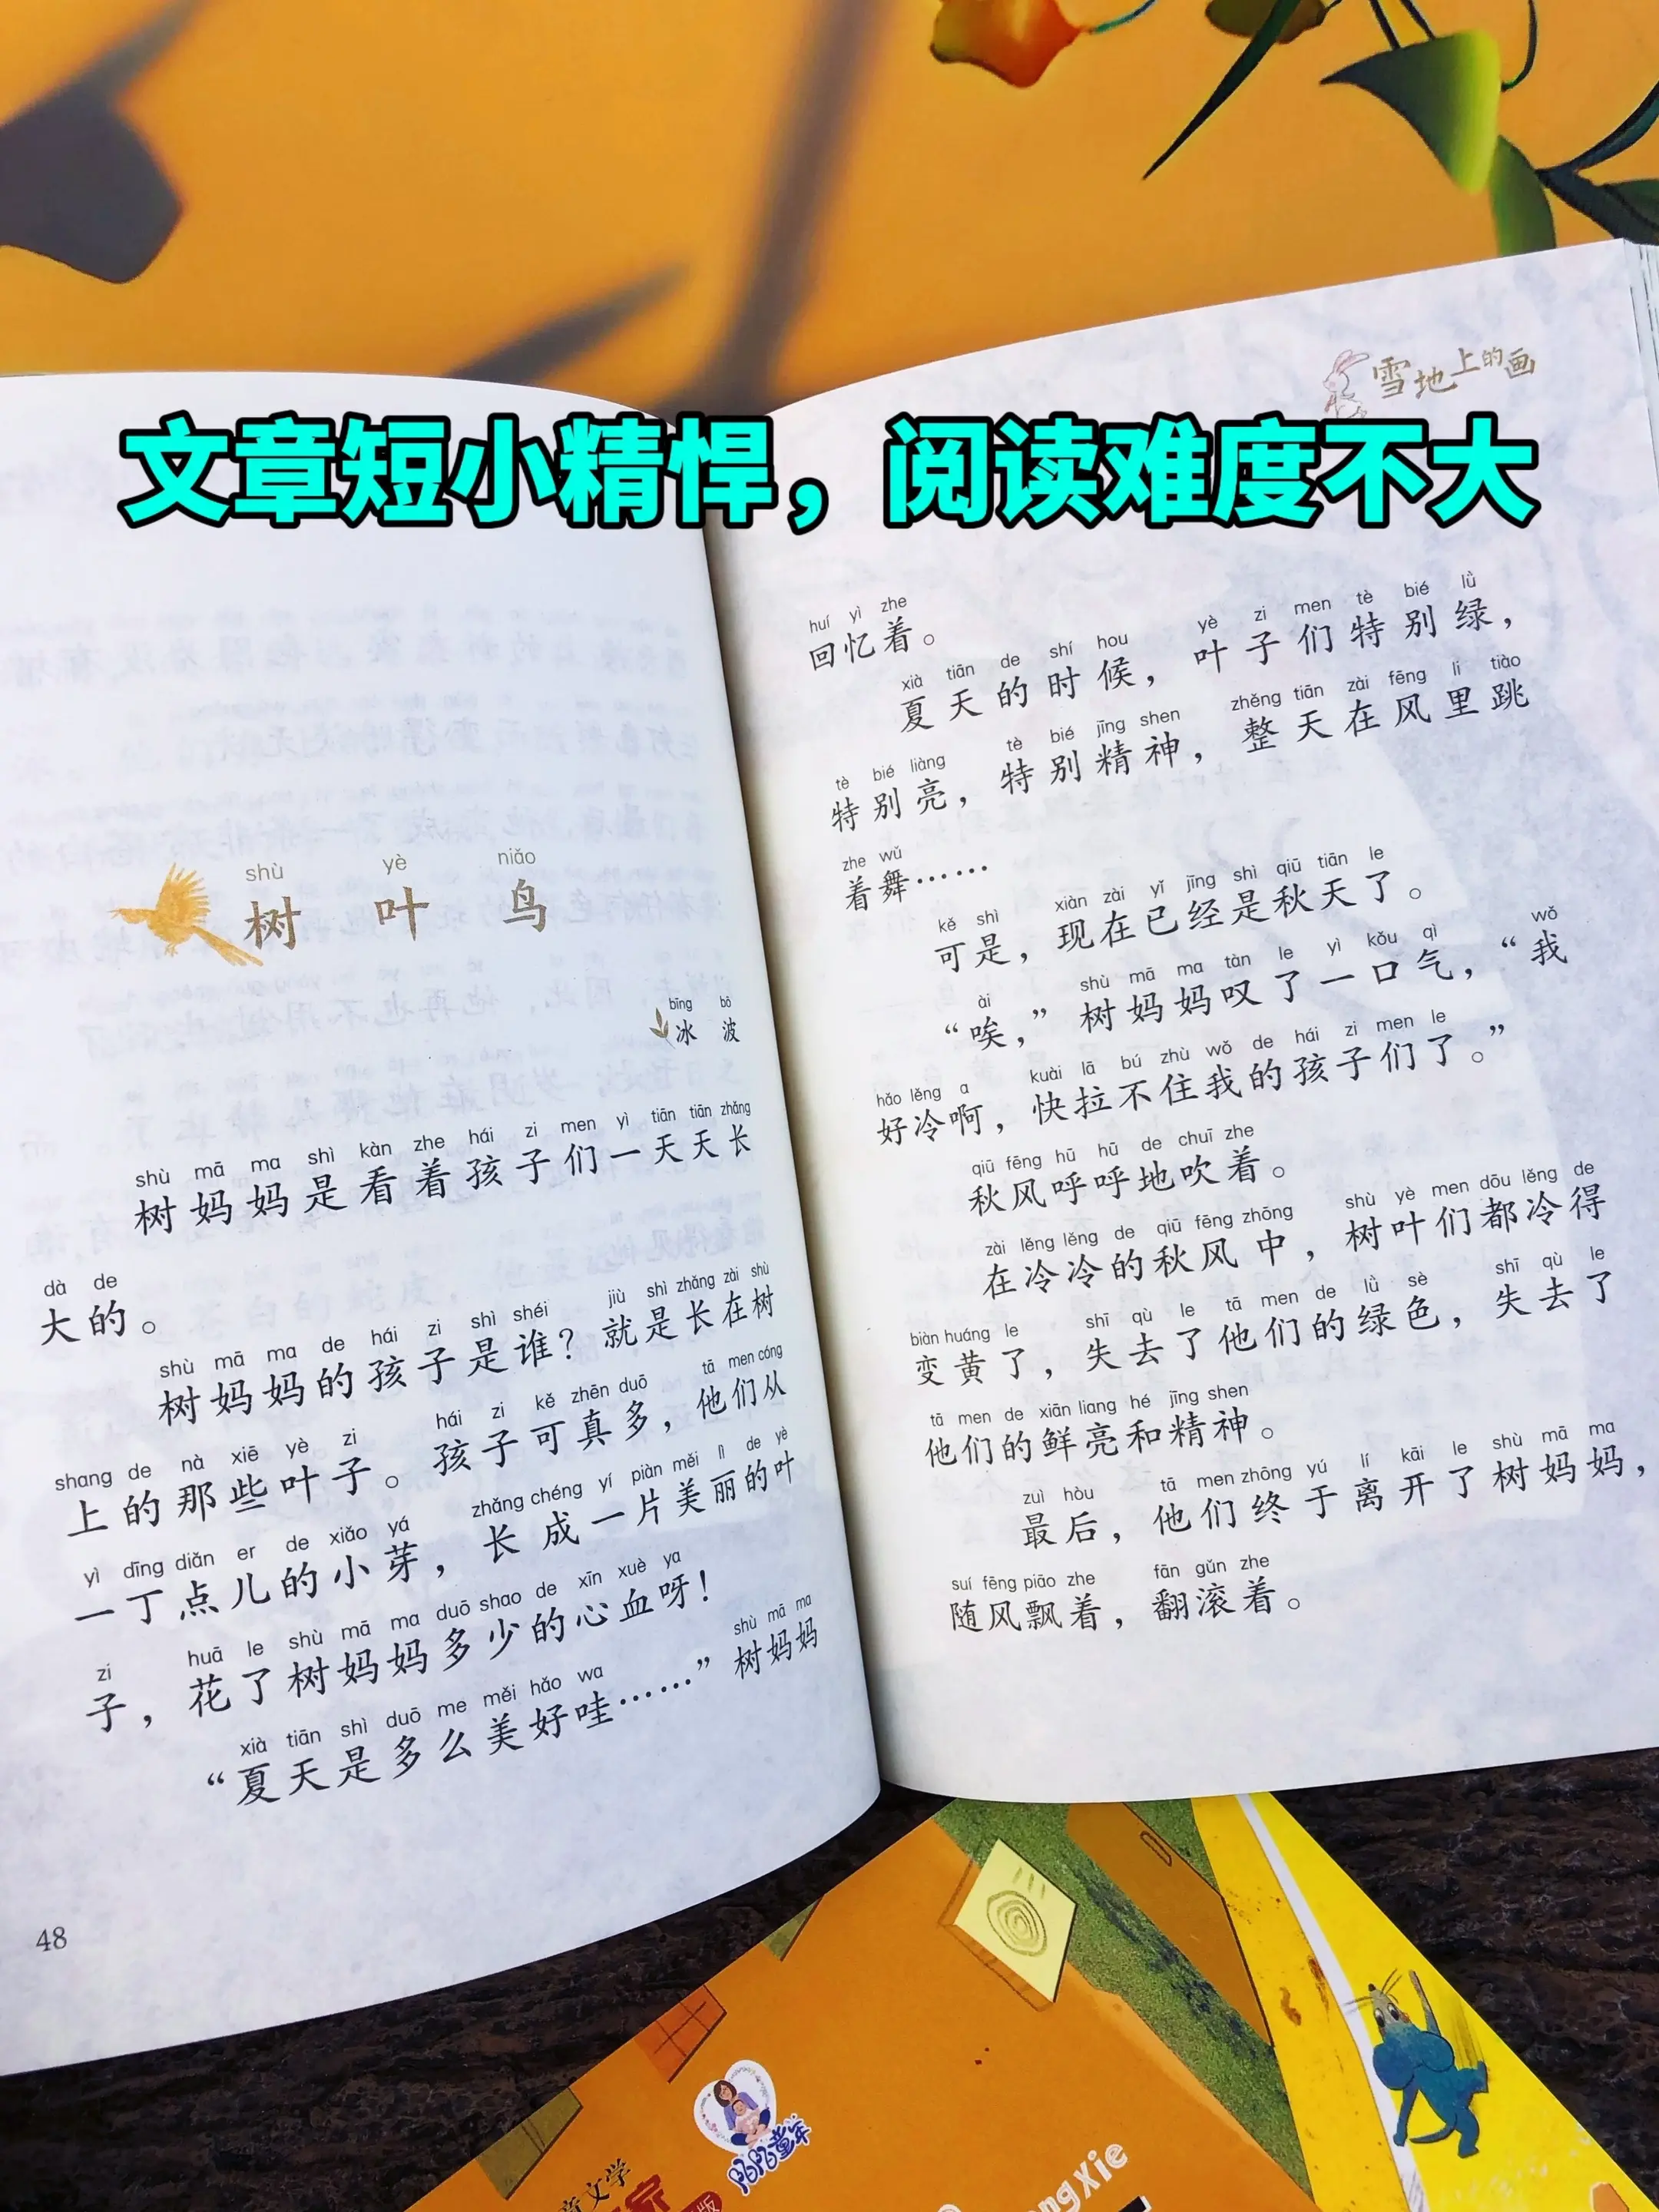 文章短小精悍，阅读难度不大
shù yè niǎo
树叶鸟
bīng bō
冰波
shù mā ma shì kàn zhe hái zi men yì tiān tiān zhǎng
树妈妈是看着孩子们一天天长
dà de
大的。
shù mā ma de hái zi shì shéi jiù shì zhǎng zài shù
树妈妈的孩子是谁？就是长在树
shang de nà xiē yè zi hái zi kě zhēn duō tā men cóng
上的那些叶子。孩子可真多，他们从
yì dīng diǎn er de xiǎo yá zhǎng chéng yí piàn měi lì de yè
一丁点儿的小芽，长成一片美丽的叶
zi huā le shù mā ma duō shao de xīn xuè ya
子，花了树妈妈多少的心血呀！
xià tiān shì duō me měi hǎo wa shù mā ma
“夏天是多么美好哇……”树妈妈
48
雪地上的画
huí yì zhe
回忆着。
xià tiān de shí hou yè zi men tè bié lǜ
夏天的时候，叶子们特别绿，
tè bié liàng tè bié jīng shen zhěng tiān zài fēng li tiào
特别亮，特别精神，整天在风里跳
zhe wǔ
着舞……
kě shì xiàn zài yǐ jīng shì qiū tiān le
可是，现在已经是秋天了。
ài shù mā ma tàn le yì kǒu qì wǒ
“唉，”树妈妈叹了一口气，“我
hǎo lěng a kuài lā bú zhù wǒ de hái zi men le
好冷啊，快拉不住我的孩子们了。”
qiū fēng hū hū de chuī zhe
秋风呼呼地吹着。
zài lěng lěng de qiū fēng zhōng shù yè men dōu lěng de
在冷冷的秋风中，树叶们都冷得
biàn huáng le shī qù le tā men de lǜ sè shī qù le
变黄了，失去了他们的绿色，失去了
tā men de xiān liang hé jīng shen
他们的鲜亮和精神。
zuì hòu tā men zhōng yú lí kāi le shù mā ma
最后，他们终于离开了树妈妈，
suí fēng piāo zhe fān gǔn zhe
随风飘着，翻滚着。
童年
文学
家
版
ngXie